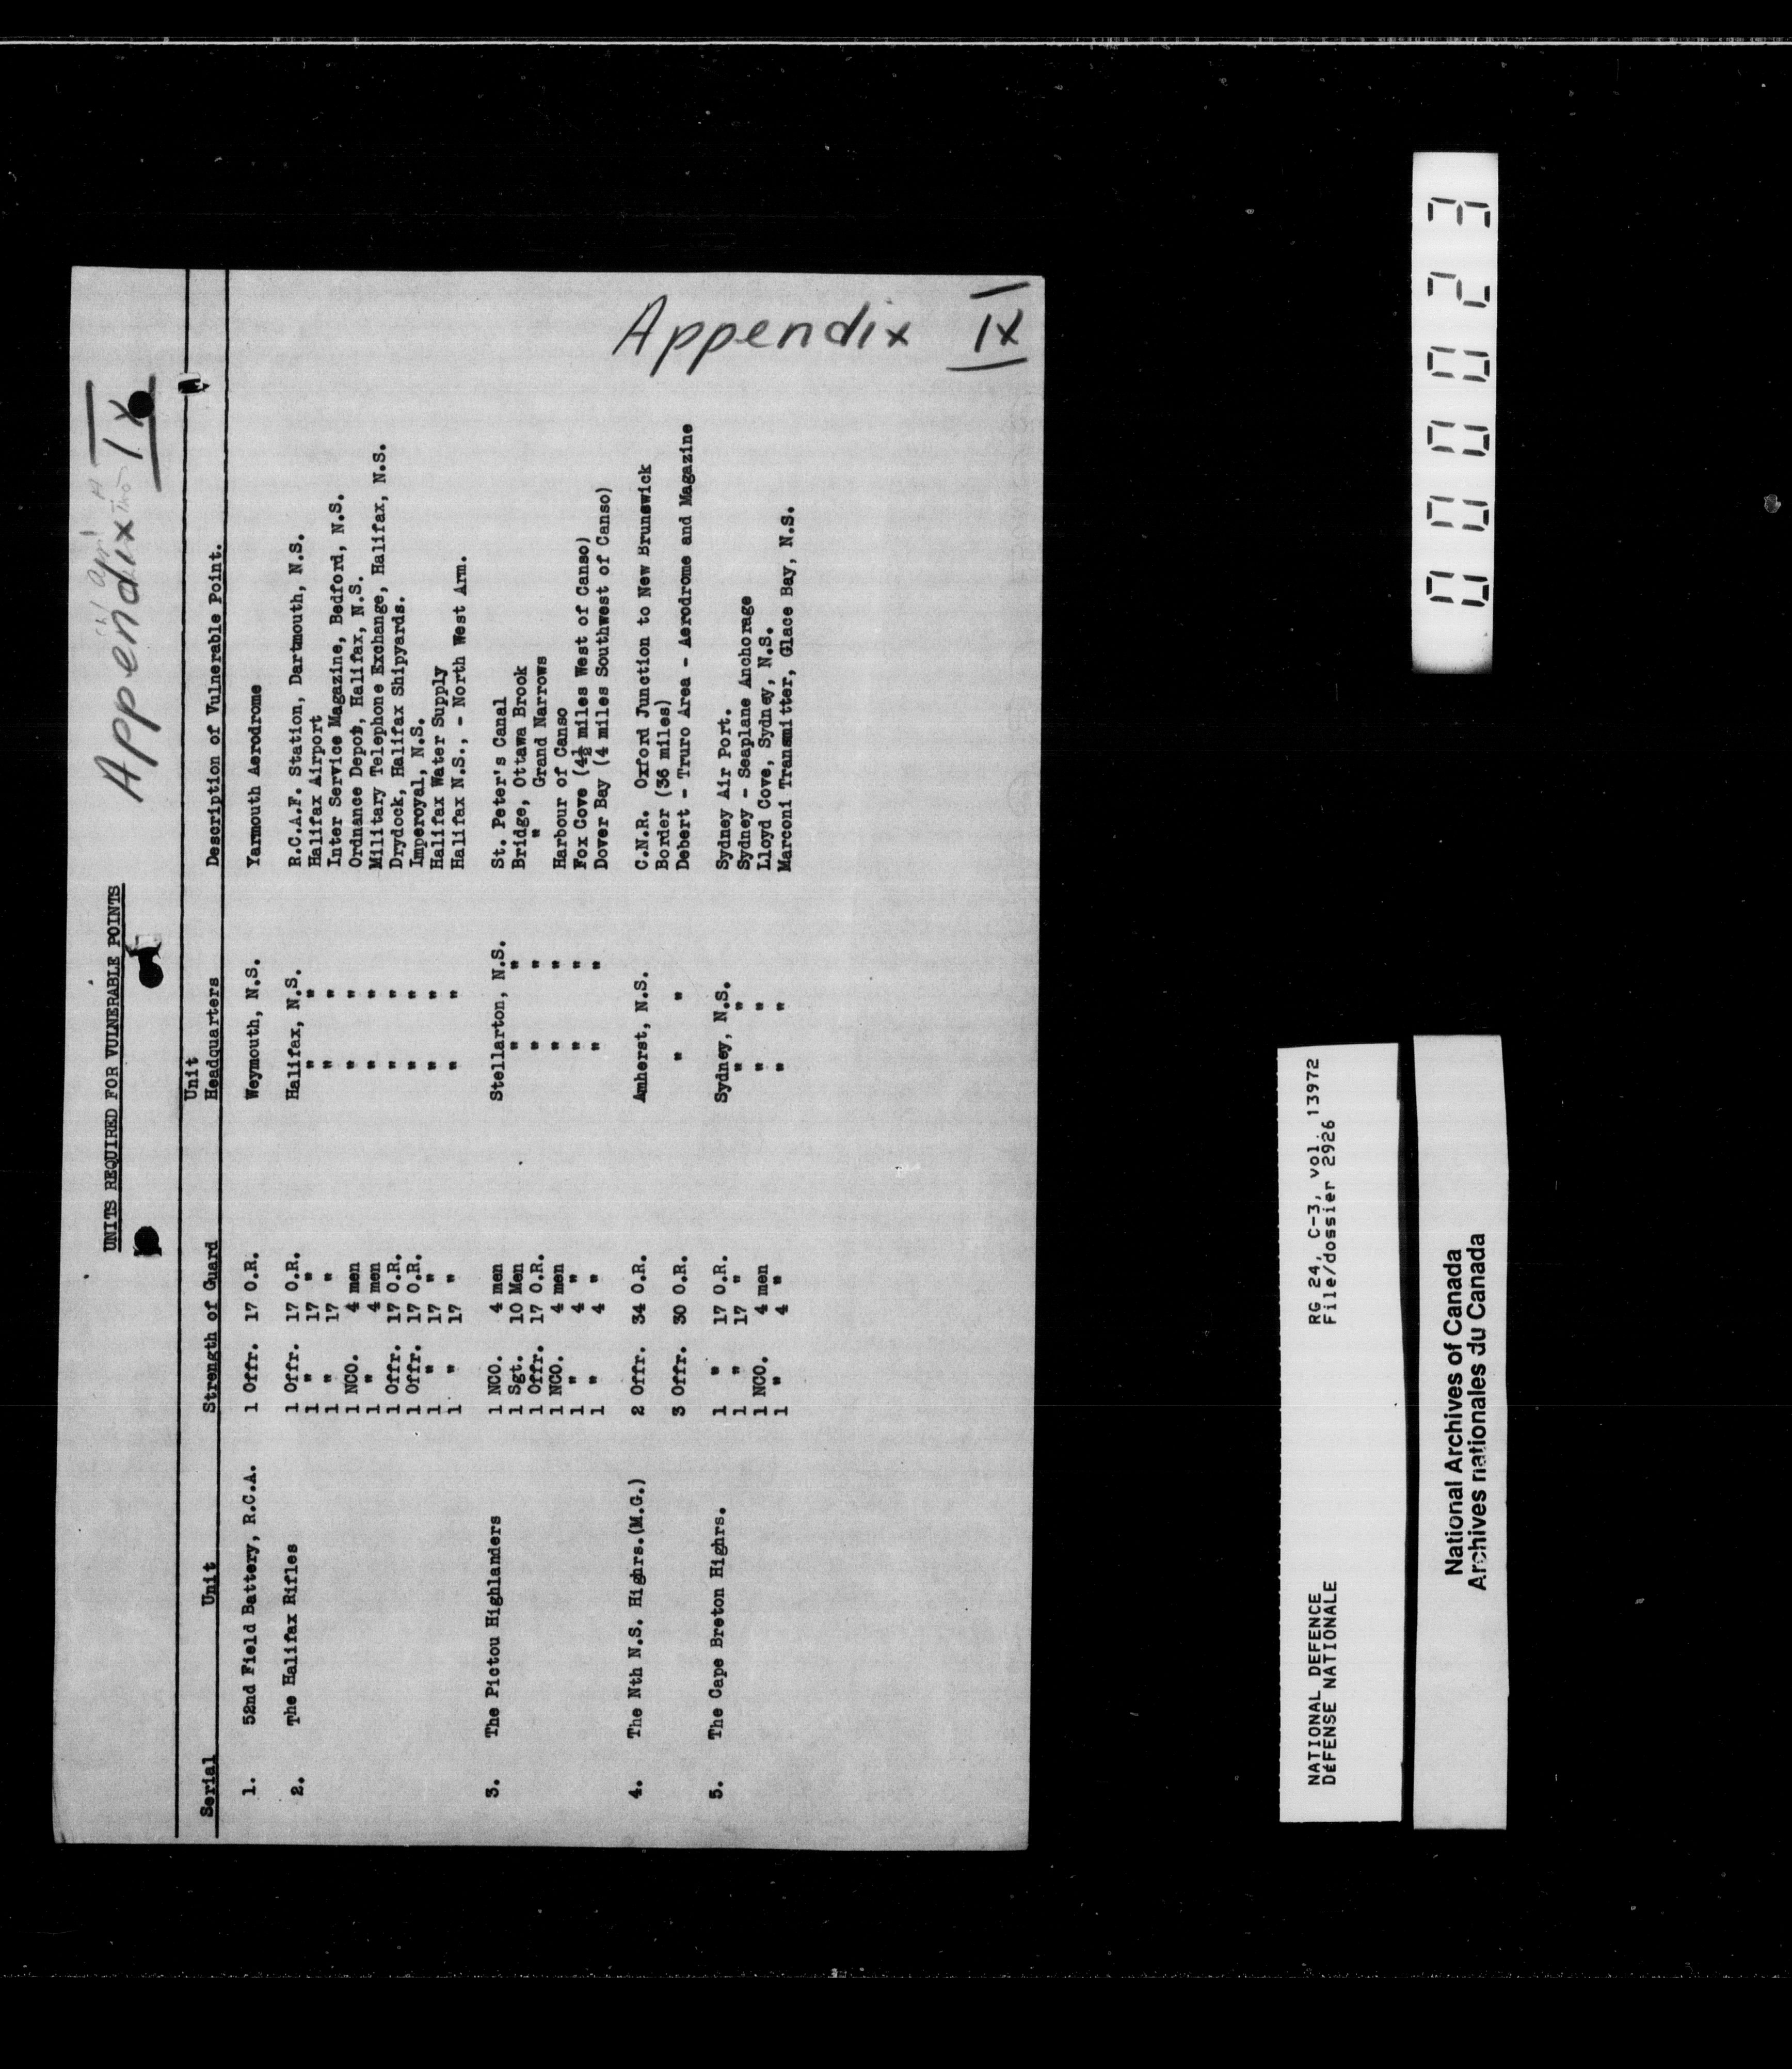 Appendix IX
UNITS REQUIRED FOR VULNERABLE POINTS
Unit
Serial Unit Strength of Guard Headquarters Description of Vulnerable Point.
1. 52nd Field Battery, R.C.A. 1 Offr. 17 O.R. Weymouth, N.S. Yarmouth Aerodrome
2. The Halifax Rifles 1 Offr. 17 O.R. Halifax, N.S. R.C.A.F. Station, Dartmouth, N.S.
1 " 17 " " " Halifax Airport
1 " 17 " " " Inter Service Magazine, Bedford, N.S.
1 NCO. 4 men " " Ordnance Depot, Halifax, N.S.
1 " 4 men " " Military Telephone Exchange, Halifax, N.S.
1 Offr. 17 O.R. " " Drydock, Halifax Shipyards.
1 Offr. 17 O.R. " " Imperoyal, N.S.
1 " 17 " " " Halifax Water Supply
1 " 17 " " " Halifax N.S., - North West Arm.
3. The Pictou Highlanders 1 NCO. 4 men Stellarton, N.S. St. Peter's Canal
1 Sgt. 10 Men " " Bridge, Ottawa Brook
1 Offr. 17 O.R. " " " Grand Narrows
1 NCO. 4 men " " Harbour of Canso
1 " 4 " " " Fox Cove (4½ miles West of Canso)
1 " 4 " " " Dover Bay (4 miles Southwest of Canso)
4. The Nth N.S. Highrs.(M.G.) 2 Offr. 34 O.R. Amherst, N.S. C.N.R. Oxford Junction to New Brunswick
Border (36 miles)
3 Offr. 30 O.R. " " Debert - Truro Area - Aerodrome and Magazine
5. The Cape Breton Highrs. 1 " 17 O.R. Sydney, N.S. Sydney Air Port.
1 " 17 " " " Sydney - Seaplane Anchorage
1 NCO. 4 men " " Lloyd Cove, Sydney, N.S.
1 " 4 " " " Marconi Transmitter, Glace Bay, N.S.
Appendix IX
NATIONAL DEFENCE RG 24, C-3, vol. 13972
DÉFENSE NATIONALE File/dossier 2926
National Archives of Canada
Archives nationales du Canada
000023